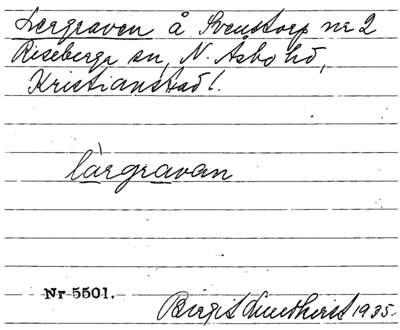 Lergraven å Svenstorp nr 2
Riseberga sn, N. Åsbo hd,
Kristianstad l.
làrgravan
Nr 5501.
Birgit Lundkvist 1935.